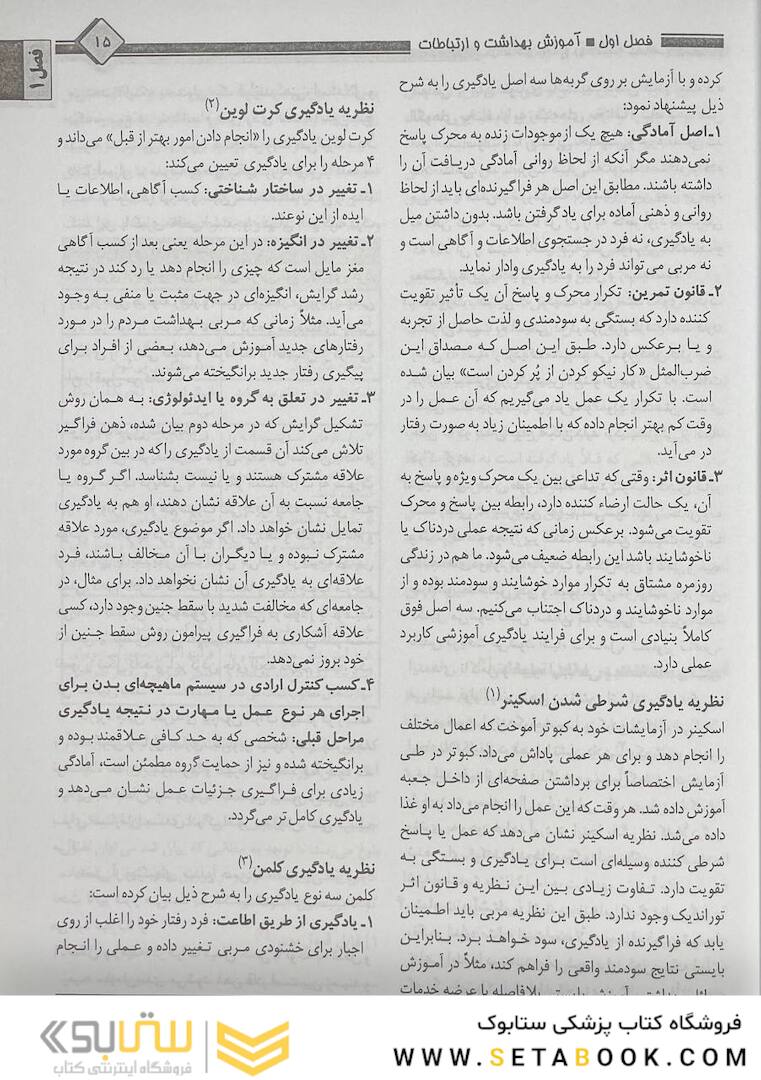 فصل اول ■ آموزش بهداشت و ارتباطات
۱۵
فصل ۱
کرده و با آزمایش بر روی گربه‌ها سه اصل یادگیری را به شرح
ذیل پیشنهاد نمود:
۱ـ اصل آمادگی: هیچ یک از موجودات زنده به محرک پاسخ
نمی‌دهند مگر آنکه از لحاظ روانی آمادگی دریافت آن را
داشته باشند. مطابق این اصل هر فراگیرنده‌ای باید از لحاظ
روانی و ذهنی آماده برای یاد گرفتن باشد. بدون داشتن میل
به یادگیری، نه فرد در جستجوی اطلاعات و آگاهی است و
نه مربی می‌تواند فرد را به یادگیری وادار نماید.
۲ـ قانون تمرین: تکرار محرک و پاسخ آن یک تأثیر تقویت
کننده دارد که بستگی به سودمندی و لذت حاصل از تجربه
و یا برعکس دارد. طبق این اصل که مصداق این
ضرب‌المثل «کار نیکو کردن از پُر کردن است» بیان شده
است. با تکرار یک عمل یاد می‌گیریم که آن عمل را در
وقت کم بهتر انجام داده که با اطمینان زیاد به صورت رفتار
در می‌آید.
۳ـ قانون اثر: وقتی که تداعی بین یک محرک ویژه و پاسخ به
آن، یک حالت ارضاء کننده دارد، رابطه بین پاسخ و محرک
تقویت می‌شود. برعکس زمانی که نتیجه عملی دردناک یا
ناخوشایند باشد این رابطه ضعیف می‌شود. ما هم در زندگی
روزمره مشتاق به تکرار موارد خوشایند و سودمند بوده و از
موارد ناخوشایند و دردناک اجتناب می‌کنیم. سه اصل فوق
کاملاً بنیادی است و برای فرایند یادگیری آموزشی کاربرد
عملی دارد.
نظریه یادگیری شرطی شدن اسکینر(۱)
اسکینر در آزمایشات خود به کبوتر آموخت که اعمال مختلف
را انجام دهد و برای هر عملی پاداش می‌داد. کبوتر در طی
آزمایش اختصاصاً برای برداشتن صفحه‌ای از داخل جعبه
آموزش داده شد. هر وقت که این عمل را انجام می‌داد به او غذا
داده می‌شد. نظریه اسکینر نشان می‌دهد که عمل یا پاسخ
شرطی کننده وسیله‌ای است برای یادگیری و بستگی به
تقویت دارد. تفاوت زیادی بین این نظریه و قانون اثر
توراندیک وجود ندارد. طبق این نظریه مربی باید اطمینان
یابد که فراگیرنده از یادگیری، سود خواهد برد. بنابراین
بایستی نتایج سودمند واقعی را فراهم کند، مثلاً در آموزش
نظریه یادگیری کرت لوین(۲)
کرت لوین یادگیری را «انجام دادن امور بهتر از قبل» می‌داند و
۴ مرحله را برای یادگیری تعیین می‌کند:
۱ـ تغییر در ساختار شناختی: کسب آگاهی، اطلاعات یا
ایده از این نوعند.
۲ـ تغییر در انگیزه: در این مرحله یعنی بعد از کسب آگاهی
مغز مایل است که چیزی را انجام دهد یا رد کند در نتیجه
رشد گرایش، انگیزه‌ای در جهت مثبت یا منفی به وجود
می‌آید. مثلاً زمانی که مربی بهداشت مردم را در مورد
رفتارهای جدید آموزش می‌دهد، بعضی از افراد برای
پیگیری رفتار جدید برانگیخته می‌شوند.
۳ـ تغییر در تعلق به گروه یا ایدئولوژی: به همان روش
تشکیل گرایش که در مرحله دوم بیان شده، ذهن فراگیر
تلاش می‌کند آن قسمت از یادگیری را که در بین گروه مورد
علاقه مشترک هستند و یا نیست بشناسد. اگر گروه یا
جامعه نسبت به آن علاقه نشان دهند، او هم به یادگیری
تمایل نشان خواهد داد. اگر موضوع یادگیری، مورد علاقه
مشترک نبوده و یا دیگران با آن مخالف باشند، فرد
علاقه‌ای به یادگیری آن نشان نخواهد داد. برای مثال، در
جامعه‌ای که مخالفت شدید با سقط جنین وجود دارد، کسی
علاقه آشکاری به فراگیری پیرامون روش سقط جنین از
خود بروز نمی‌دهد.
۴ـ کسب کنترل ارادی در سیستم ماهیچه‌ای بدن برای
اجرای هر نوع عمل یا مهارت در نتیجه یادگیری
مراحل قبلی: شخصی که به حد کافی علاقمند بوده و
برانگیخته شده و نیز از حمایت گروه مطمئن است، آمادگی
زیادی برای فراگیری جزئیات عمل نشان می‌دهد و
یادگیری کامل تر می‌گردد.
نظریه یادگیری کلمن(۳)
کلمن سه نوع یادگیری را به شرح ذیل بیان کرده است:
۱ـ یادگیری از طریق اطاعت: فرد رفتار خود را اغلب از روی
اجبار برای خشنودی مربی تغییر داده و عملی را انجام
فروشگاه کتاب پزشکی ستابوک
WWW.SETABOOK.COM
ستابوک
فروشگاه اینترنتی کتاب